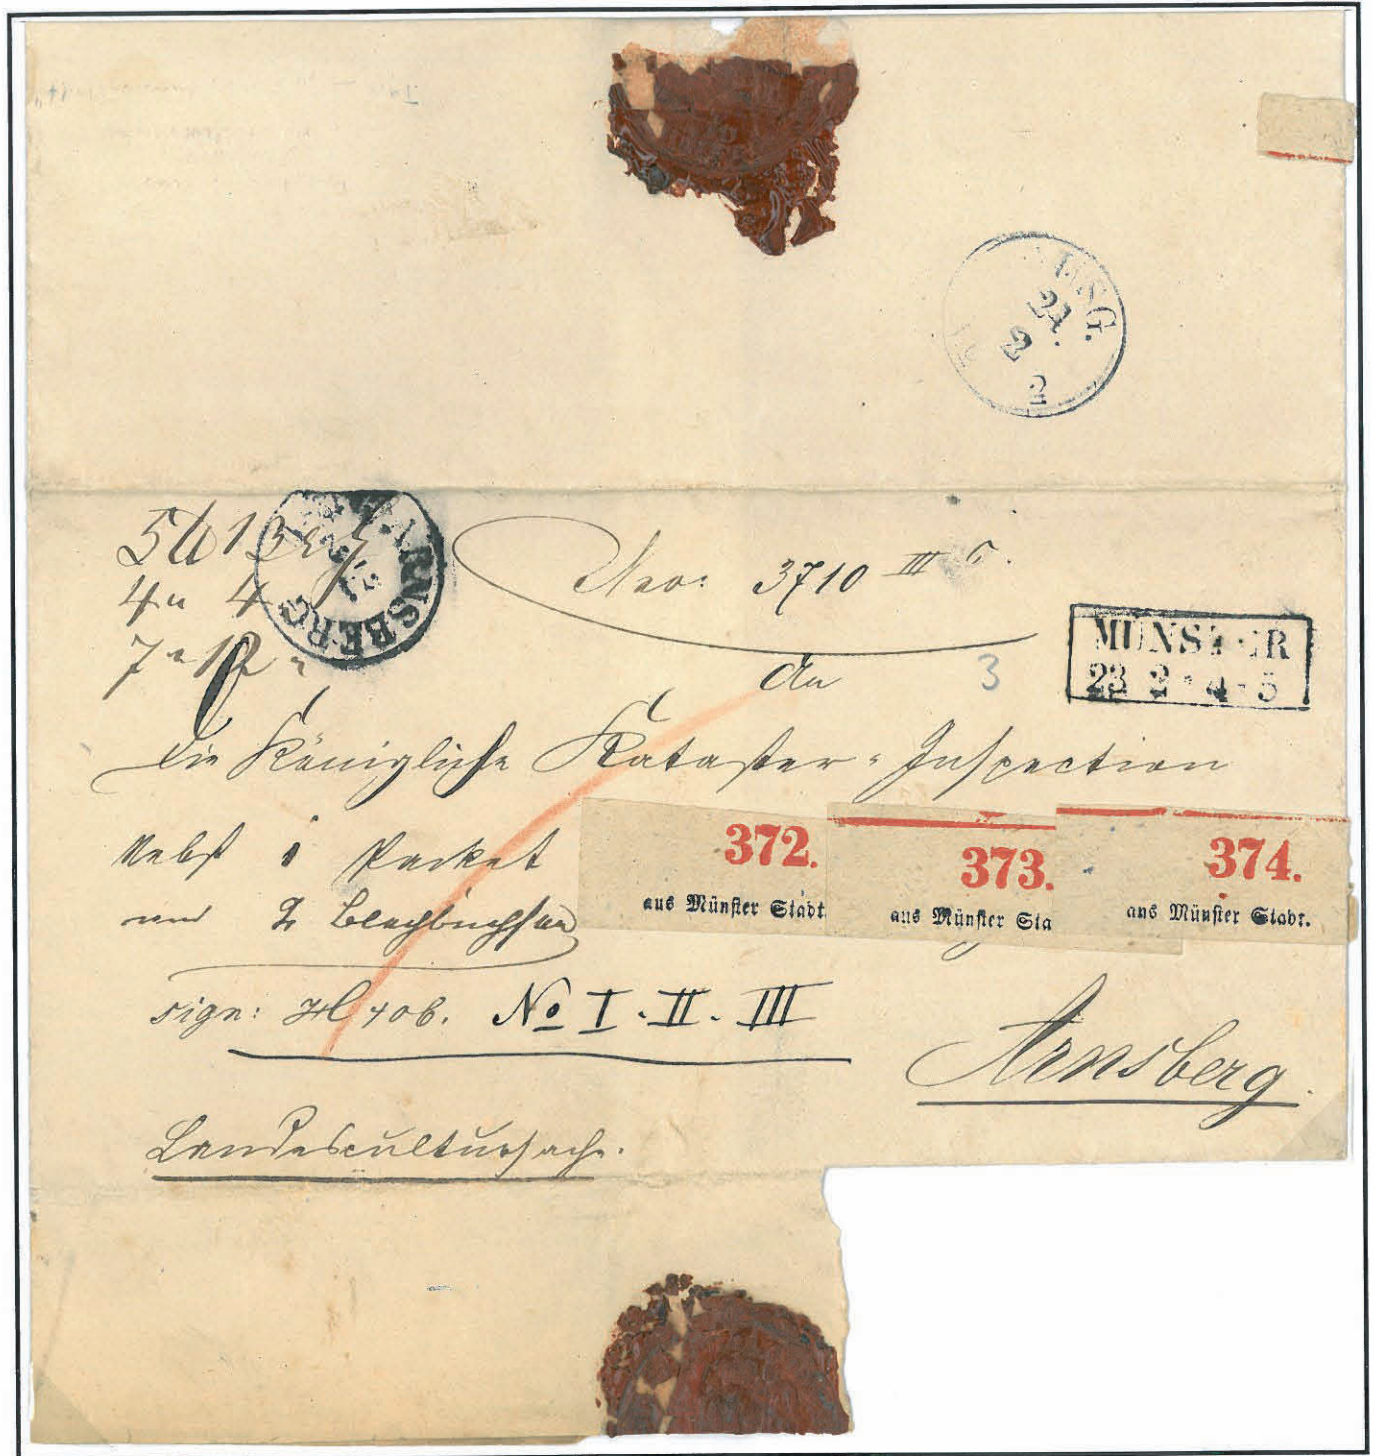 AUSG.
21
2
2
ARNSBERG
Nro: 3710 III
4 " 4
7 " 12 "
An
3
MÜNSTER
23 2 * 4-5
die Königliche Kataster-Inspection
nebst 1 Packet
und 2 Blechbüchsen
372.
aus Münster Stadt
373.
aus Münster Sta
374.
aus Münster Stadt.
sign: No I. II. III
Arnsberg.
Landescultursache.